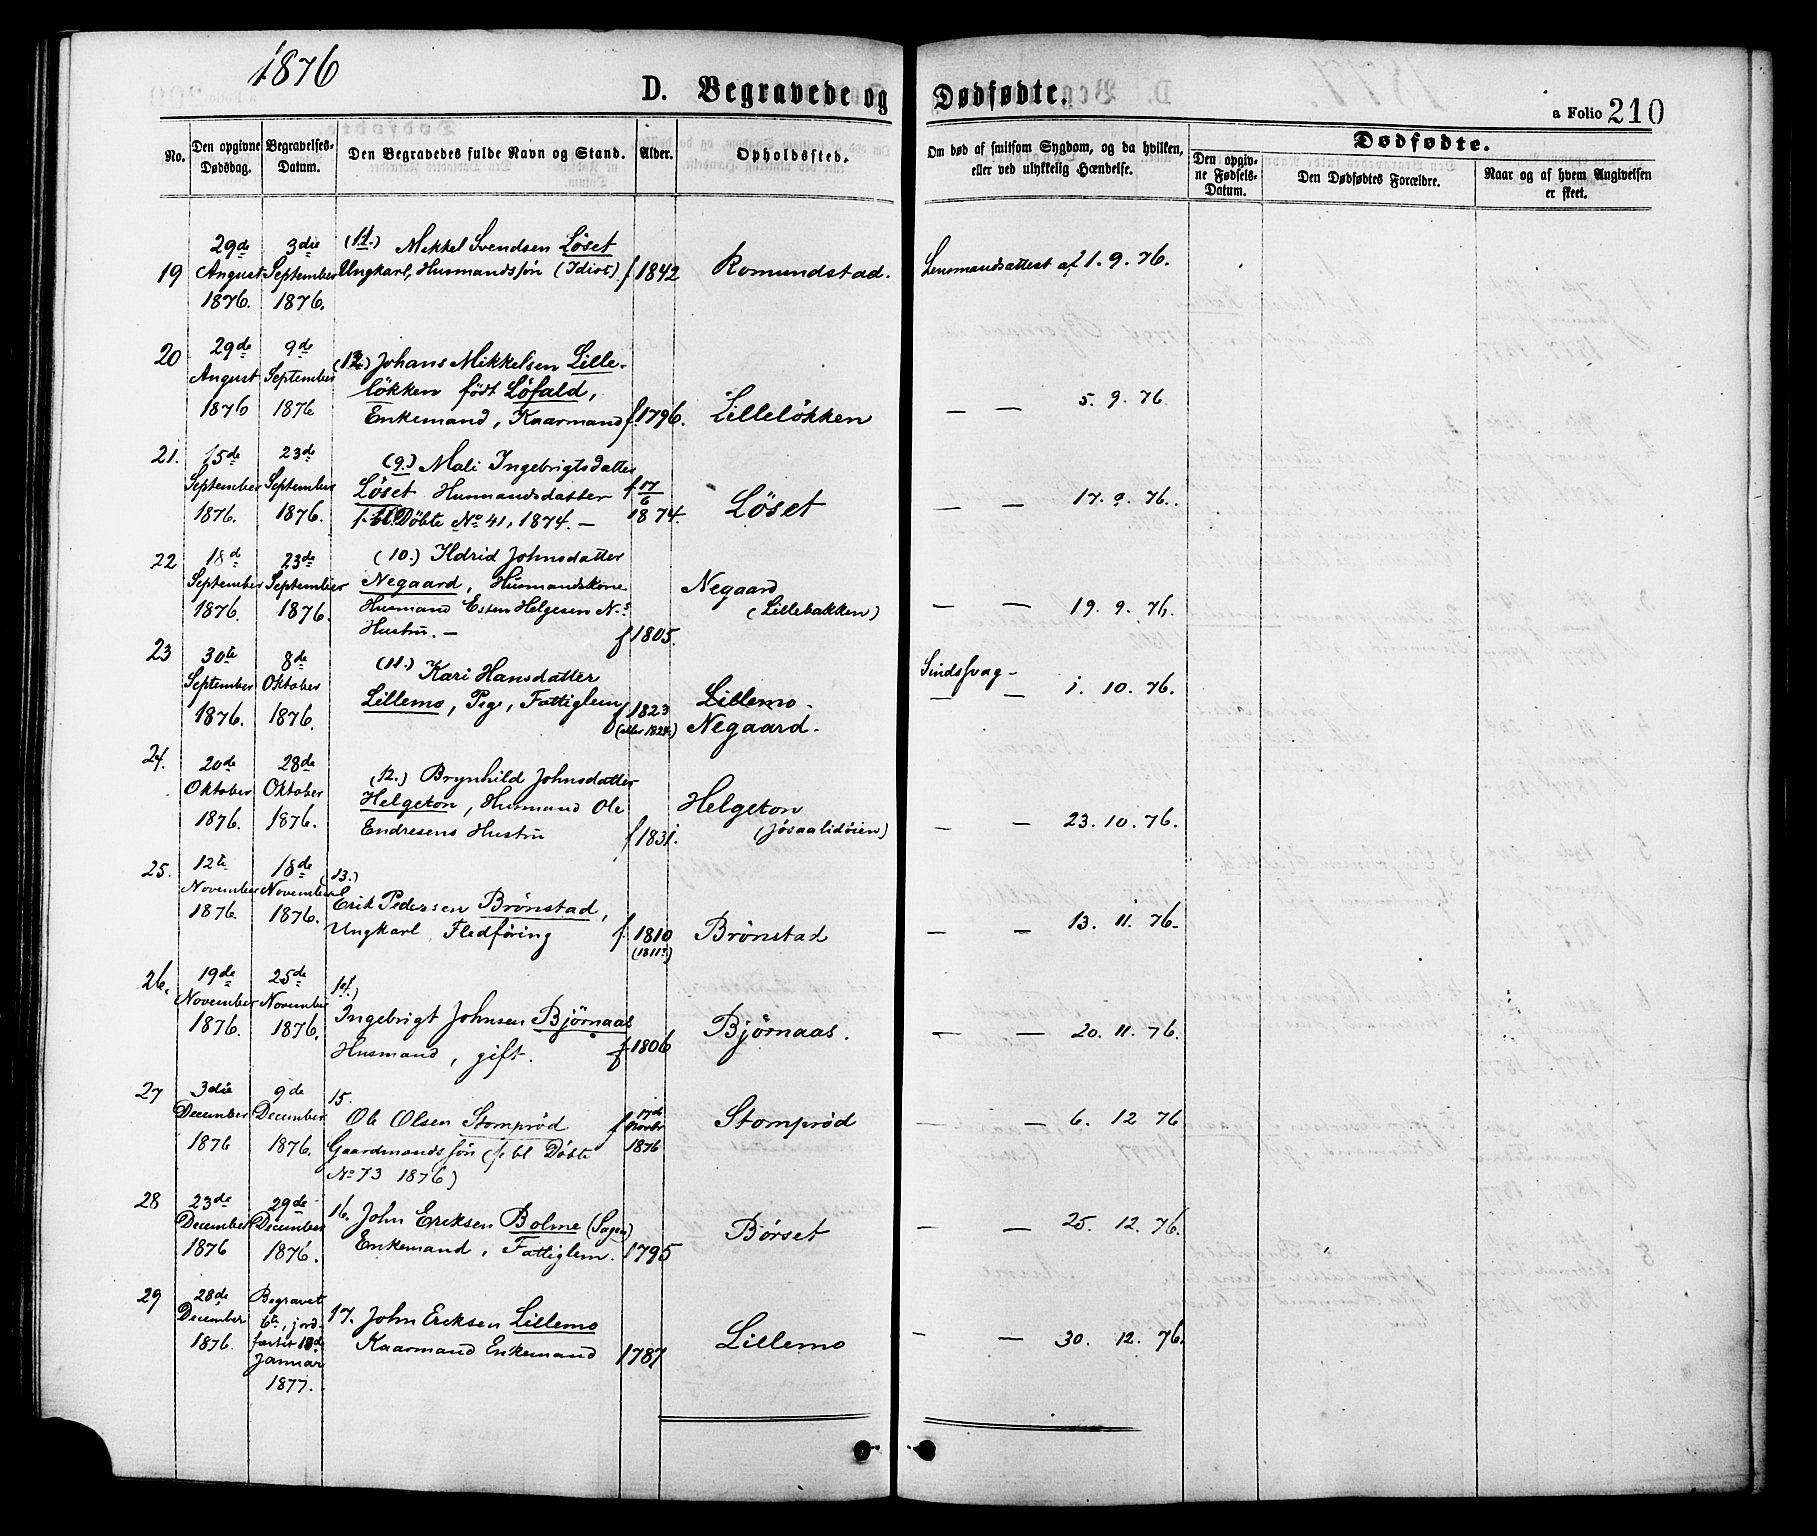 1876
D. Begravede og Dødfødte.
a Folio 210
No.
Den opgivne Dødsdag.
Begravelses-Datum.
Den Begravedes fulde Navn og Stand.
Alder.
Opholdssted.
Om død af smitsom Sygdom, og da hvilken,
eller ved ulykkelig Hændelse.
Dødfødte.
Den opgiv-
ne Fødsels-
Datum.
Den Dødfødtes Forældre.
Naar og af hvem Angivelsen
er skeet.
19
29de August 1876.
3die September 1876.
(11.) Mikkel Svendsen Löset
Ungkarl, Husmandssön (Idiot)
f 1842
Romundstad.
Lensmandsattest af 1. 9. 76.
20
29de August 1876
9de September 1876
(12.) Johans Mikkelsen Lille-
lökken födt Löfald,
Enkemand, Kaarmand
f. 1796.
Lillelökken
— — 5. 9. 76.
21.
15de September 1876.
23de September 1876.
(9.) Mali Ingebrigtsdatter
Löset Husmandsdatter
f. bl. Döbte No 41, 1874. —
f. 17/6 1874.
Löset
— — 17. 9. 76.
22
18d September 1876.
23de September 1876.
(10.) Ildrid Johnsdatter
Negaard, Husmandskone
Husmand Esten Helgesen N.s
Hustru. —
f 1805.
Negaard
(Lillebakken)
— — 19. 9. 76.
23
30te September 1876.
8de Oktober 1876.
(11.) Kari Hansdatter
Lillemo, Pige, Fattiglem
f 1823
(eller 1824)
Lillemo -
Negaard.
Sindssvag -
— — 1. 10. 76.
24.
20de Oktober 1876.
28de Oktober 1876.
(12.) Brynhild Johnsdatter
Helgeton, Husmand Ole
Endresens Hustru
f 1831.
Helgeton
(Jösaalidöien)
— — 23. 10. 76.
25.
12te November 1876.
18de November 1876.
(13.)
Erik Pedersen Brönstad,
Ungkarl, Fledföring
f. 1810
(1811?)
Brönstad
— — 13. 11. 76.
26.
19de November 1876.
25de November 1876.
14.)
Ingebrigt Johnsen Björnaas
Husmand, gift.
f 1806
Björnaas.
— — 20. 11. 76.
27
3die December 1876
9de December 1876.
15.
Ole Olsen Stompröd
Gaardmandssön (f. bl Döbte
No 73 1876)
f 17de Novbr 1876
Stompröd
— — 6. 12 76
28
23de December 1876
29de December 1876.
16. John Eriksen Bolme (Sagen)
Enkemand, Fattiglem.
1795
Börset
— — 25. 12. 76.
29
28de December 1876.
Begravet
6te, jord-
fæstet 10de
Januar
1877.
17. John Ericksen Lillemo
Kaarmand Enkemand
1787
Lillemo
— — 30. 12. 76.